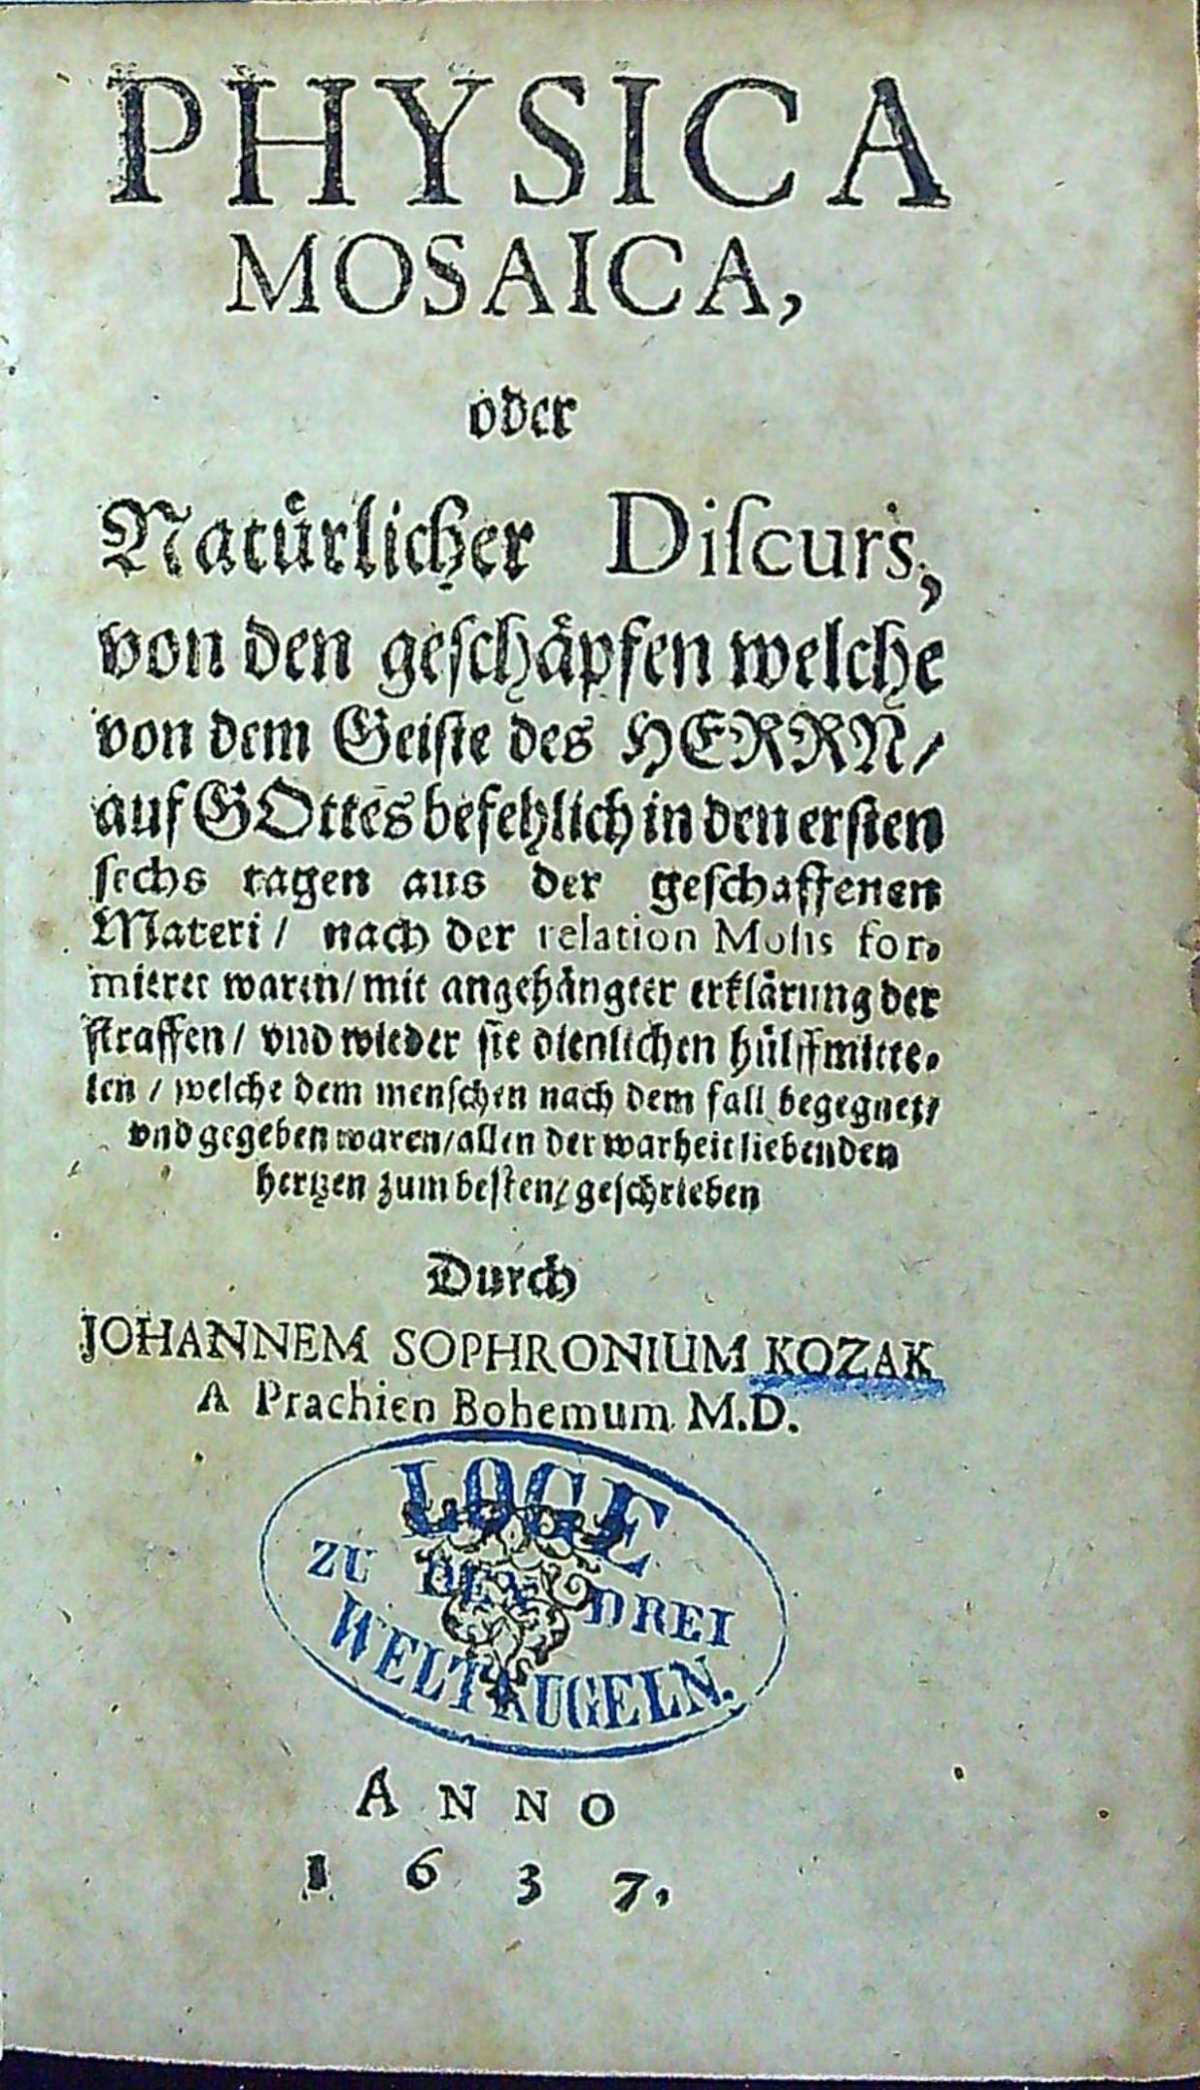 PHYSICA
MOSAICA,
oder
Natuͤrlicher Diſcurs,
von den geſchaͤpfen welche
von dem Geiſte des HERRN/
auf GOttes befehlich in den erſten
ſechs tagen aus der geſchaffenen
Materi/ nach der relation Moſis for⸗
mieret waren/ mit angehaͤngter erklaͤrung der
ſtraffen/ vnd wieder ſie dienlichen huͤlffmitte⸗
len/ welche dem menſchen nach dem fall begegnet/
vnd gegeben waren/ allen der warheit liebenden
hertzen zum beſten/ geſchrieben
Durch
JOHANNEM SOPHRONIUM KOZAK
A Prachien Bohemum M.D.
LOGE
ZU DEN DREI
WELTKUGELN.
ANNO
1637.